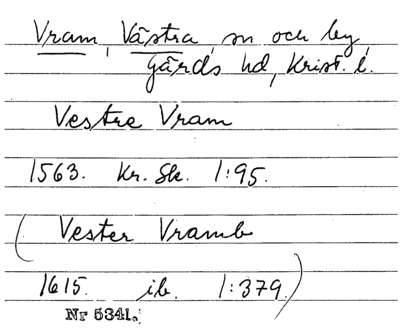 Vram, Västra, sn och by
Gärds hd, Krist. l.
Vestre Vram
1563. Kr. Sk. 1:95.
(Vester Vramb
1615. ib. 1:379.)
Nr 5341.